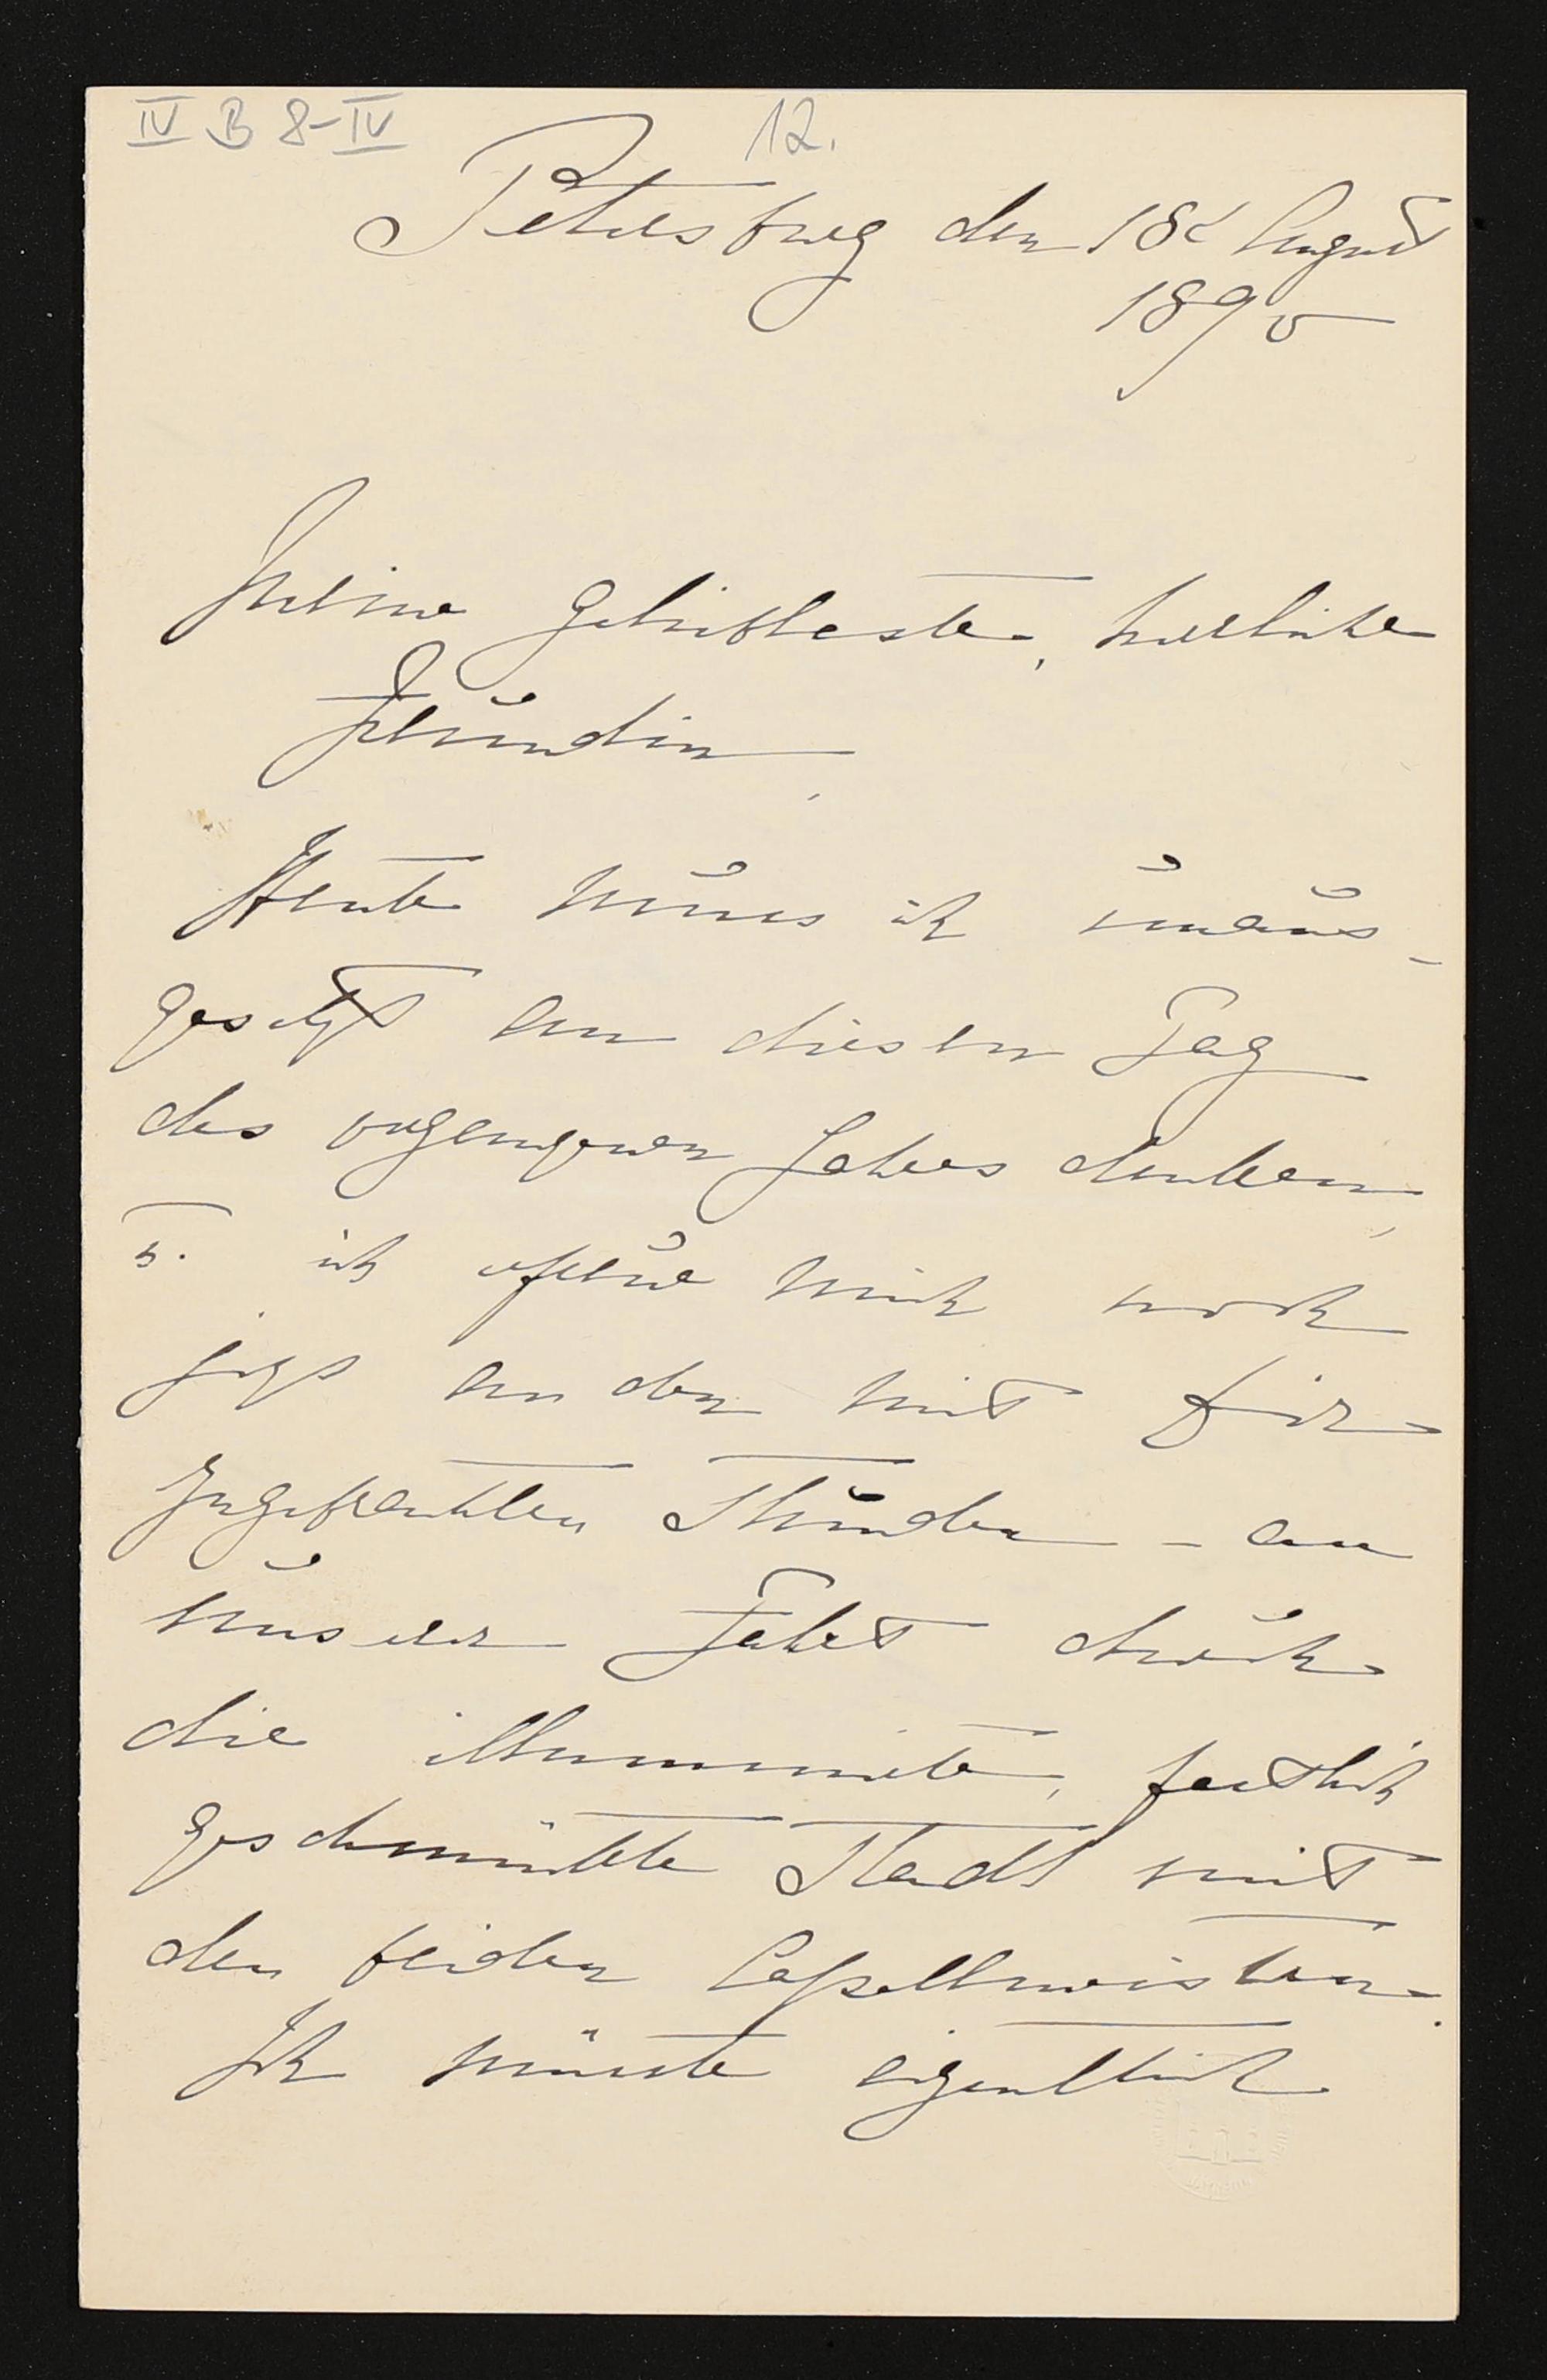 IV B 8-IV
12.
Petersburg den 18t August
1890
Meine geliebteste, herrliche
Freundin,
Heute muss ich unaus-
gesetzt an diesen Tag
des vergangenen Jahres denken,
u. ich erfreue mich noch
jetzt an den mit Dir
zugebrachten Stunden – an
unsere Fahrt durch
die illuminirte, festlich
geschmückte Stadt mit
den beiden Capellmeistern.
Ich müsste eigentlich